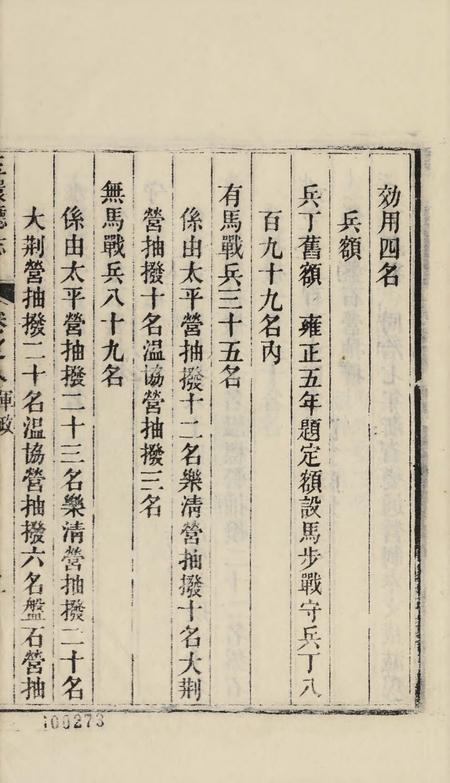 効用四名
兵額
兵丁舊額 雍正五年題定額設馬步戰守兵丁八
百九十九名內
有馬戰兵三十五名
係由太平營抽撥十二名樂清營抽撥十名大荆
營抽撥十名温協營抽撥三名
無馬戰兵八十九名
係由太平營抽撥二十三名樂清營抽撥二十名
大荆營抽撥二十名温協營抽撥六名盤石營抽
環廳志
卷之八
100273